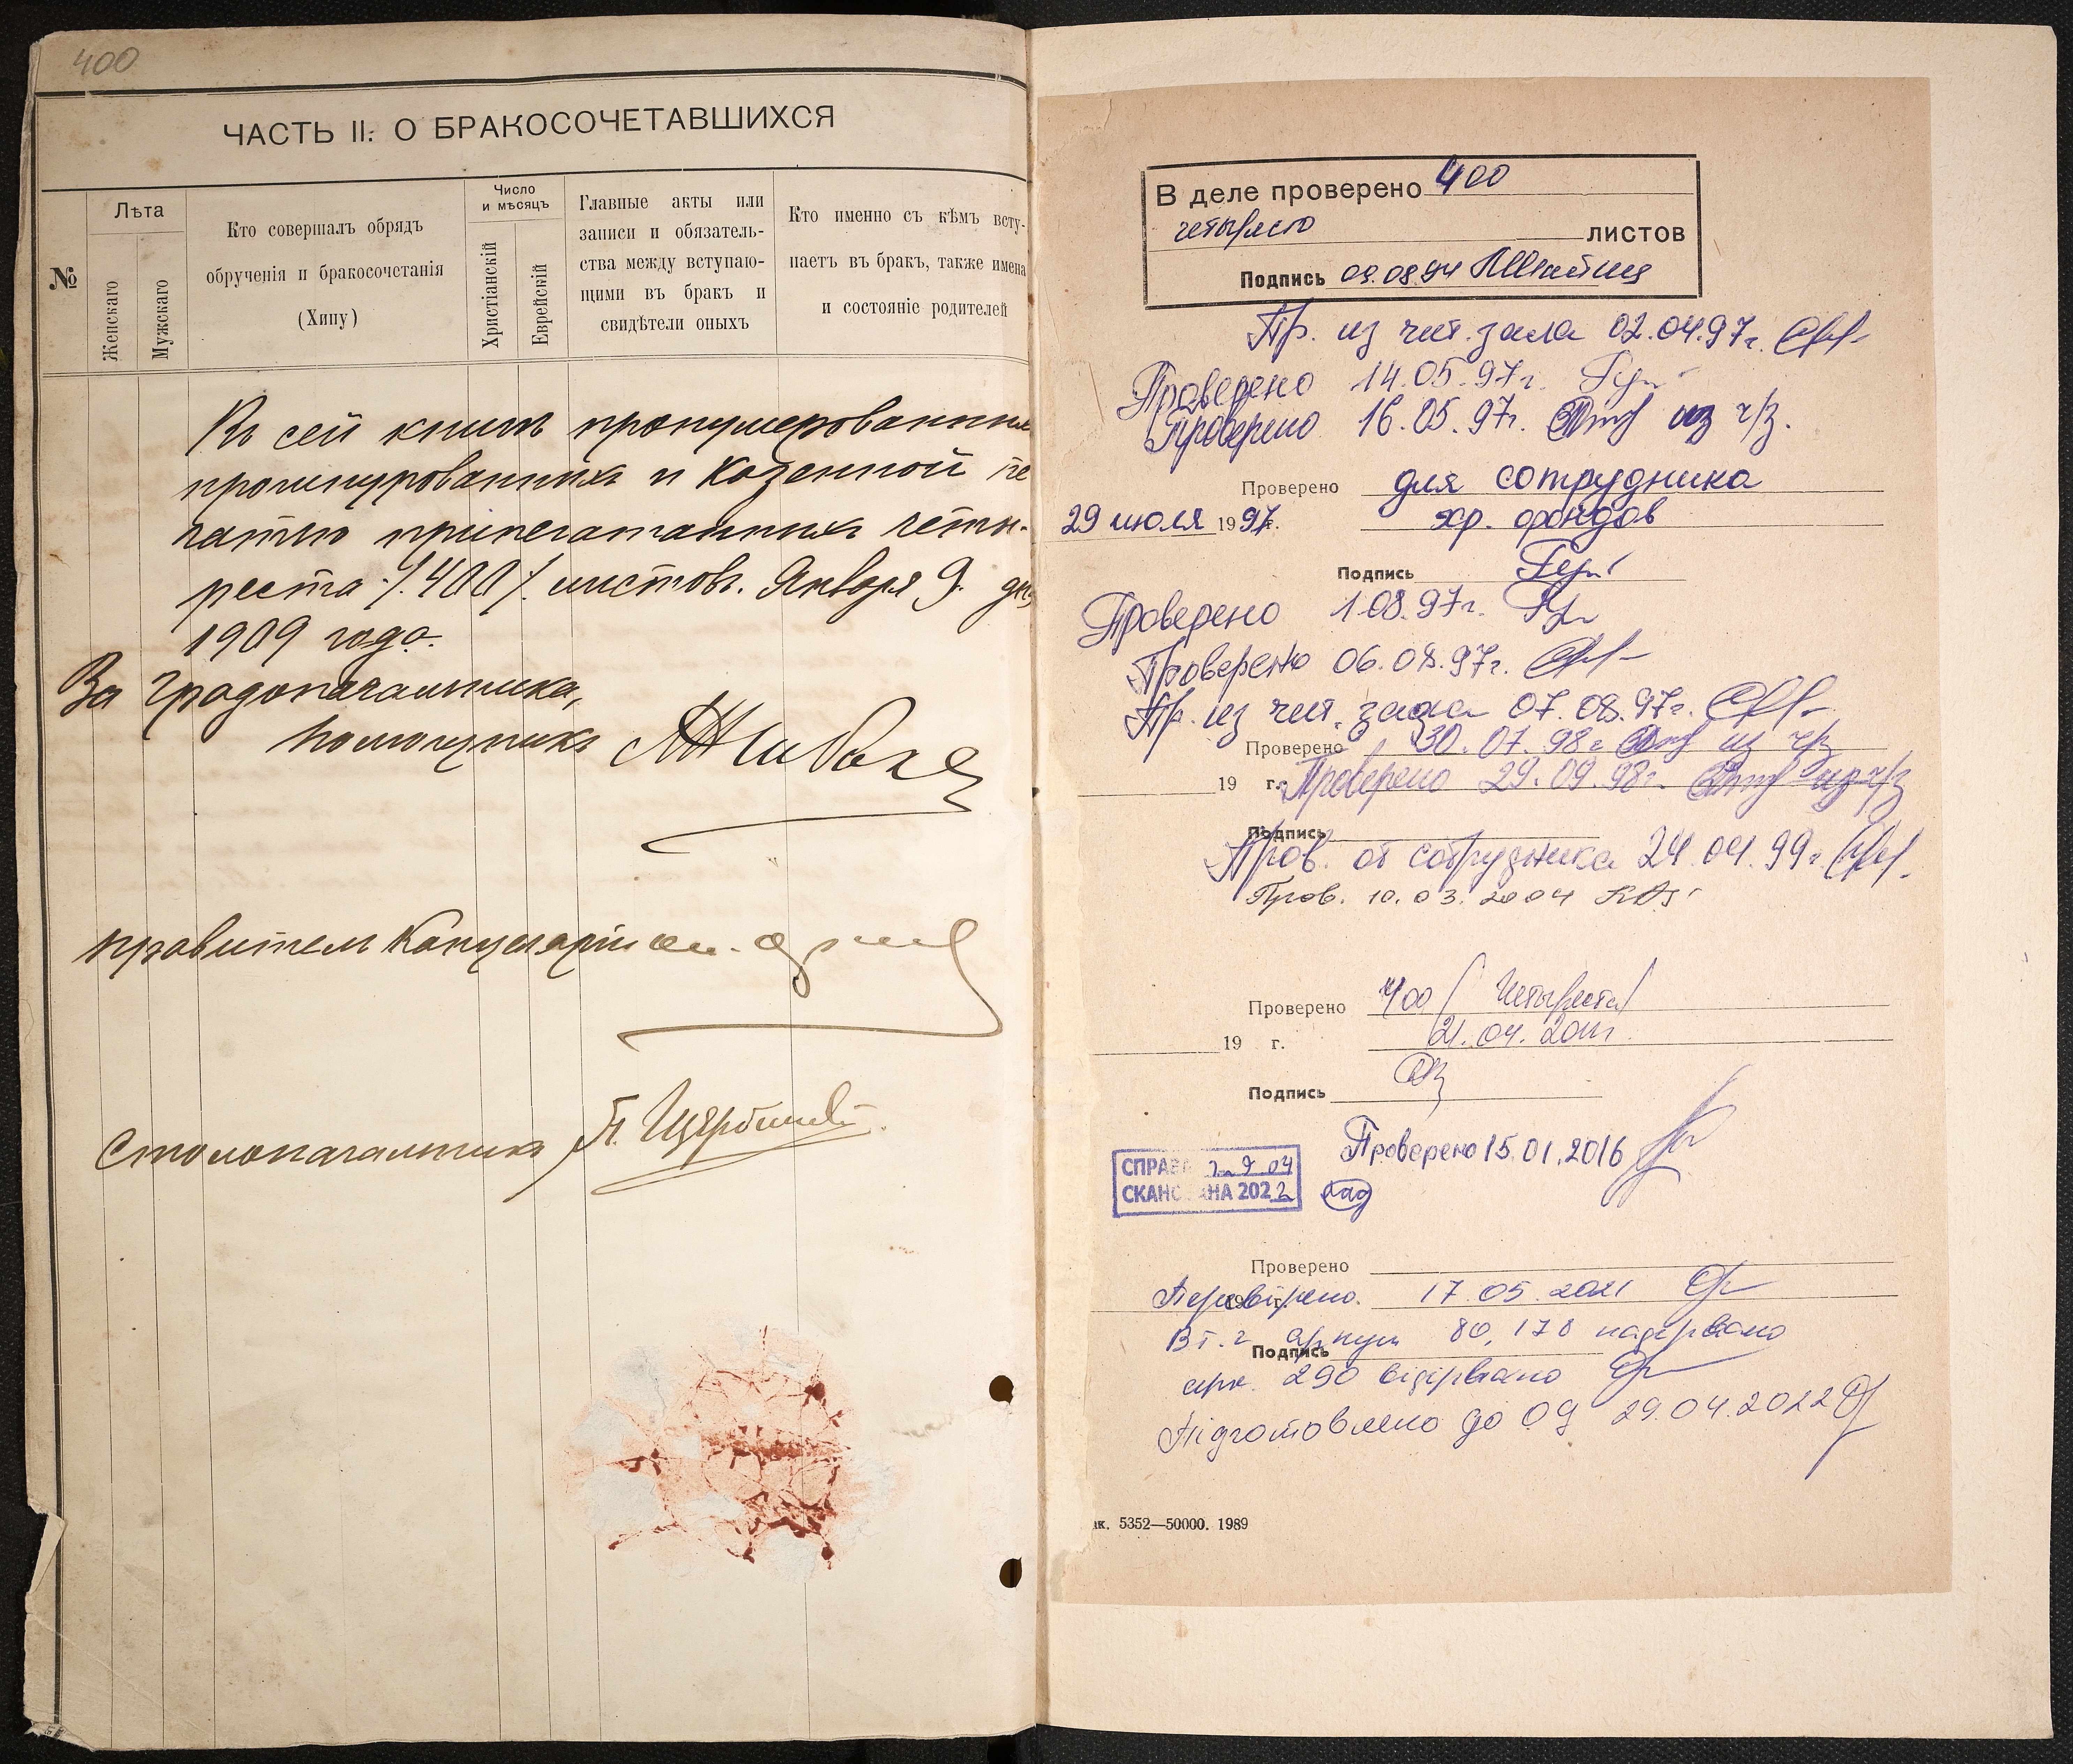 400
ЧАСТЬ II. О БРАКОСОЧЕТАВШИХСЯ
№
Лѣта
Женскаго
Мужскаго
Кто совершалъ обрядъ
обрученія и бракосочетанія
(Хипу)
Число
и мѣсяцъ
Христіанскій
Еврейскій
Главные акты или
записи и обязатель-
ства между вступаю-
щими въ бракъ и
свидѣтели оныхъ
Кто именно съ кѣмъ всту-
паетъ въ бракъ, также имена
и состояніе родителей
Въ сей книгѣ пронумерованныхъ
прошнурованныхъ и казенной пе
чатью припечатанныхъ четы-
реста /400/ листовъ. Января 9 дня
1909 года.
За Градоначальника,
помощникъ
Правитель Канцеляріи
Столоначальникъ
В деле проверено 400
четыреста
листов
Подпись 09.08.94
Пр. из чит. зала 02.04.97г.
Проверено 14.05.97г.
Проверено 16.05.97г. из ч/з.
Проверено для сотрудника
29 июля 1997г. хр. фондов
Подпись
Проверено 1.08.97г.
Проверено 06.08.97г.
Пр. из чит. зала 07.08.97г.
Проверено 30.07.98г. из ч/з
19 г. Проверено 29.09.98г. из ч/з
Подпись
Пров. от сотрудника 24.04.99г.
Пров. 10.03.2004
Проверено 400 (четыреста)
21.04.2011г.
19 г.
Подпись
Проверено 15.01.2016
СПРАВА
СКАНОВАНА 2022
Проверено
Перевірено. 17.05.2021
19 г.
В т.ч. аркуш 80, 178 надірвано
Подпись
арк. 290 відірвано
Підготовлено до ОЦ 29.04.2022
ак. 5352—50000. 1989